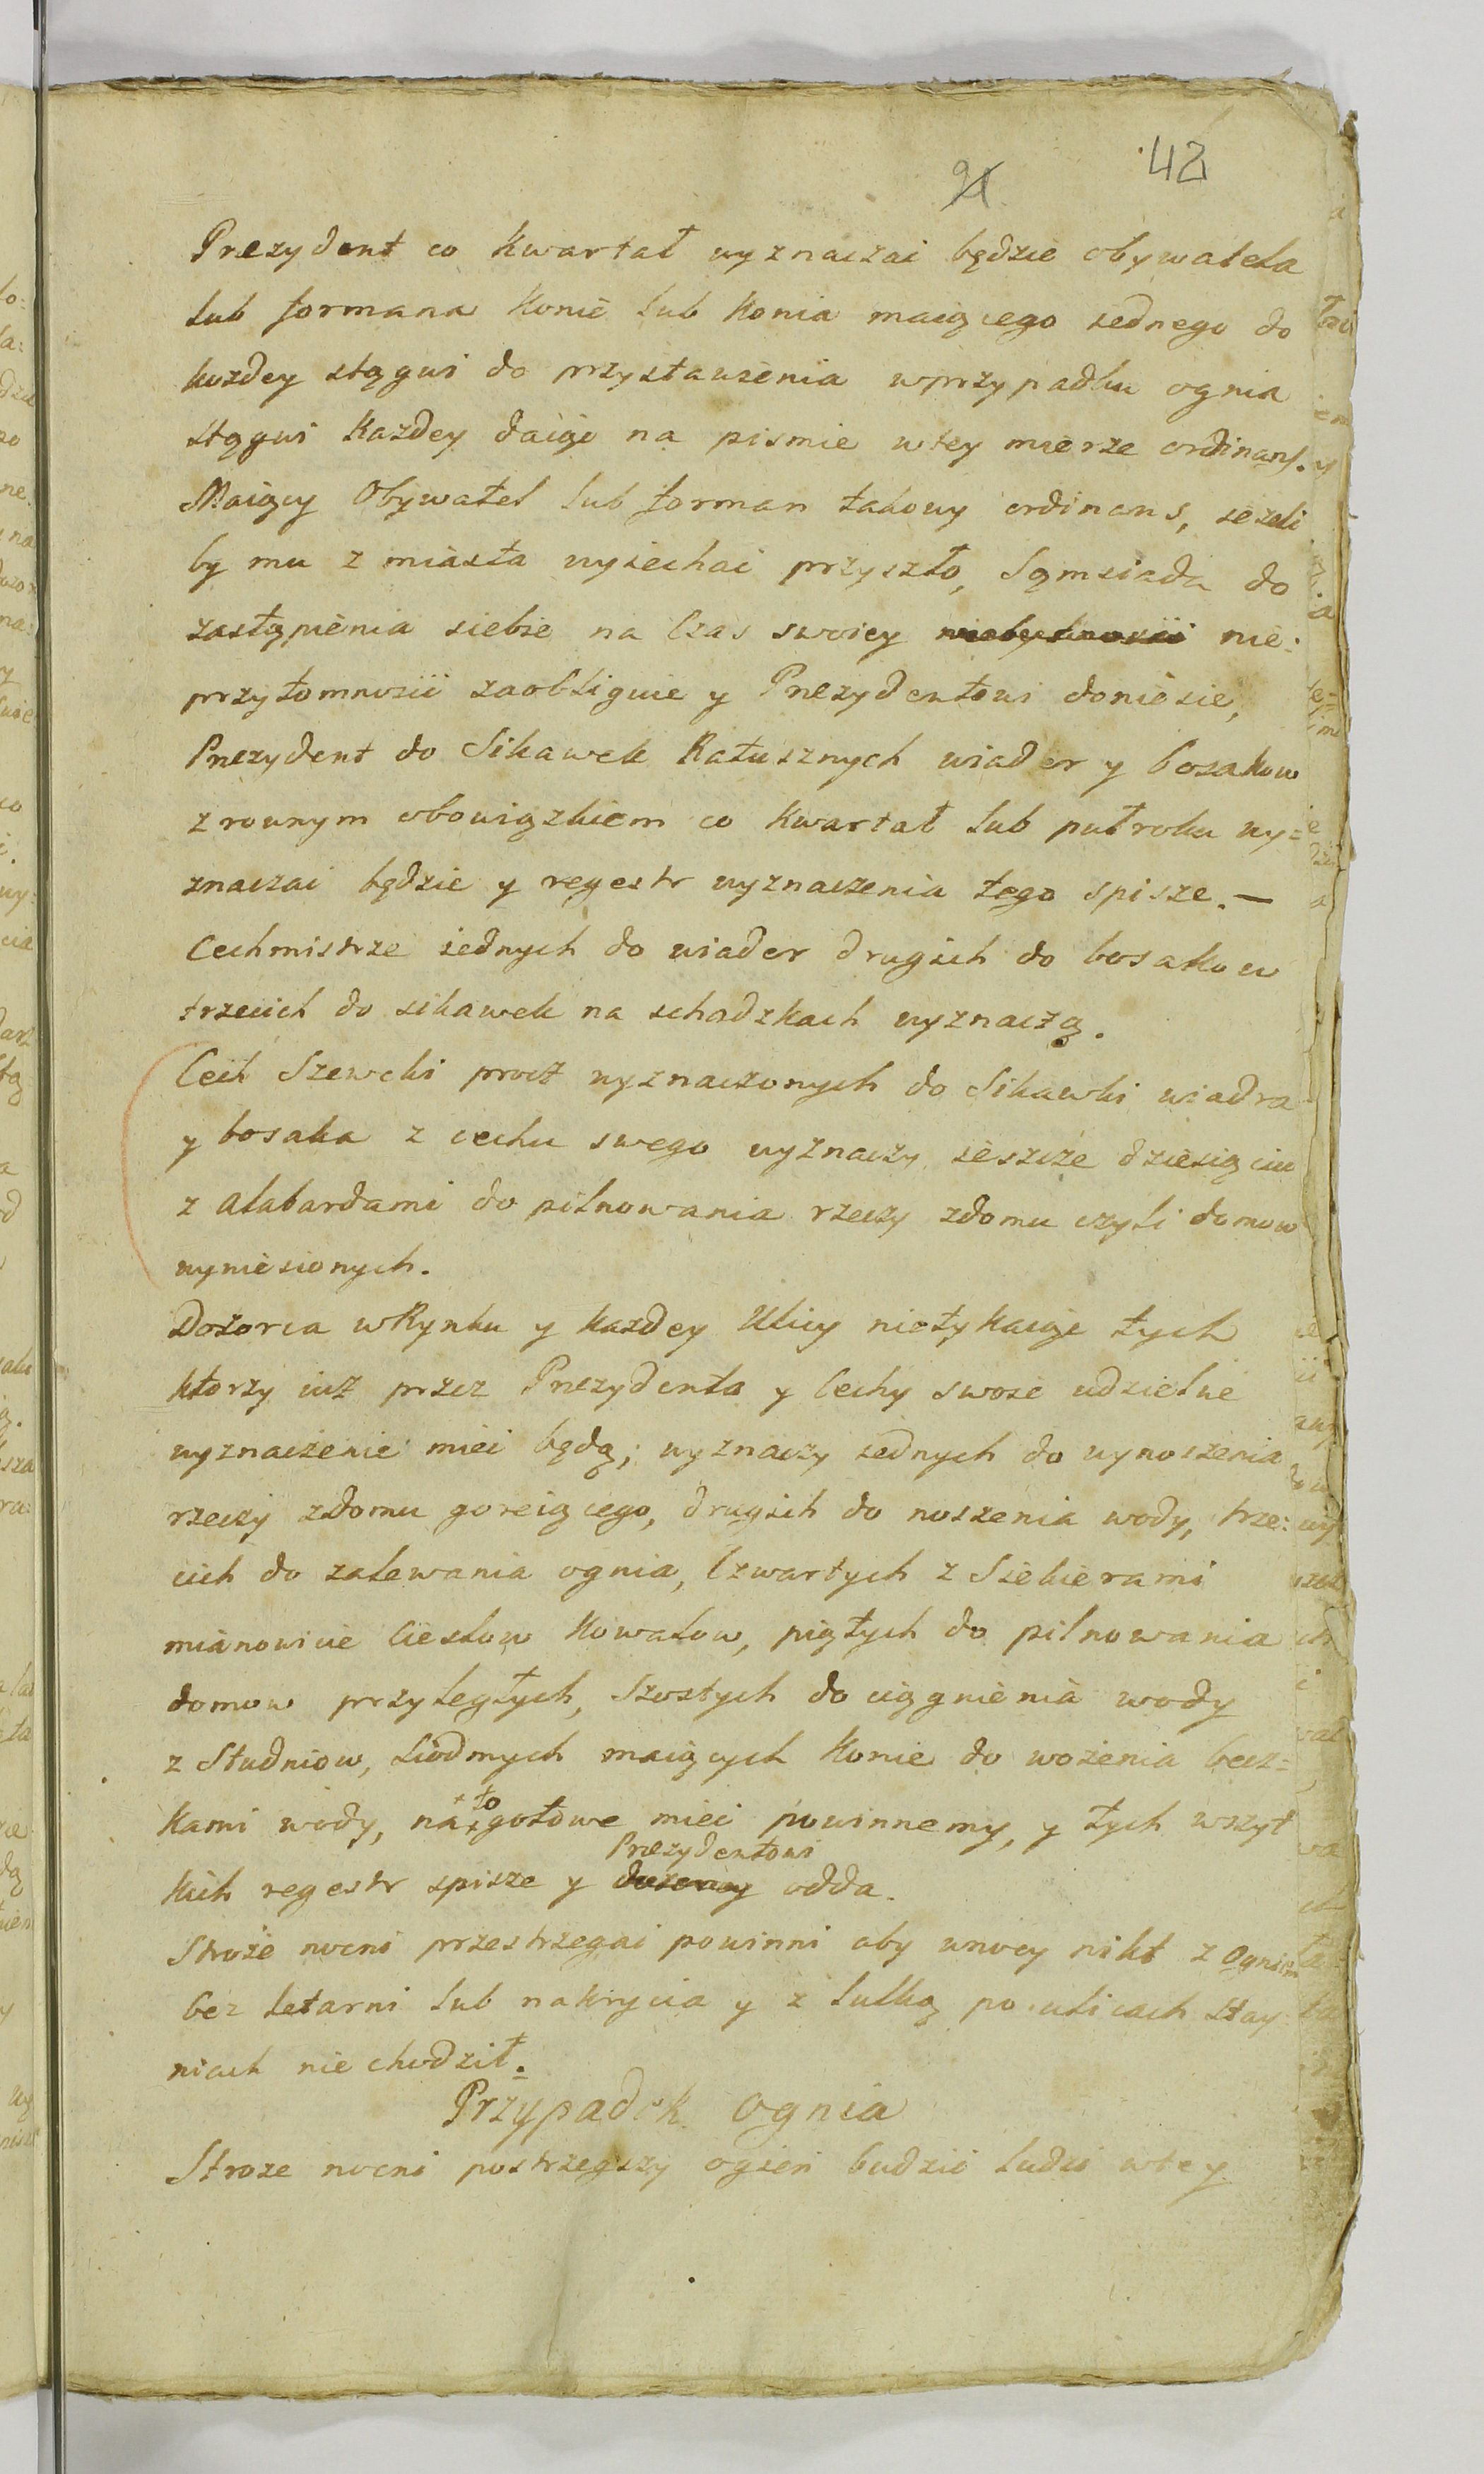 42
Prezydent co kwartał wyznaczać będzie obywatela
lub formana konie lub konia maiącego iednego do
kozdey stągwi do przystawienia wprzypadku ognia
stągwi kazdey daiąc na pismie wtey mierze ordinans.
Maiący Obywatel lub forman takowy ordinans, iezeli
by mu z miasta wyiechać przyszło, Sąmsiada do
zastąpienia siebie na Czas swoiey nie:
przytomności zaobliguie y Prezydentowi doniesie,
Prezydent do Sikawek Ratusznych wiader y bosakow
z rownym obowiązkiem co kwartał lub pułroku wy=
znaczać będzie y regestr wyznaczenia tego spisze. —
Cechmistrze iednych do wiader drugich do bosakow
trzecich do sikawek na schadzkach wyznaczą.
Cech Szewcki procz wyznaczonych do Sikawki wiadra
y bosaka z cechu swego wyznaczy ieszcze dziesiąciu
z alabardami do pilnowania rzeczy zdomu czyli domow
wyniesionych.
Dozorca wRynku y kazdey Ulicy nietykaiąc tych
ktorzy iuz przez Prezydenta y Cechy swoie udzielne
wyznaczenie mieć będą; wyznaczy iednych do wynoszenia
rzeczy zdomu goreiącego, drugich do noszenia wody, trze:
cich do zalewania ognia, Czwartych z Siekierami
mianowicie Ciesłow kowalow, piątych do pilnowania
domow przyległych, Szostych do ciągnienia wody
z Studniow, siodmych maiących konie do wożenia becz=
kami wody, na to gotowe mieć powinnemy, y tych wszyt
kich regestr spisze y Prezydentowi dozorcy odda.
Stroże nocni przestrzegać powinni aby wnocy nikt z Ogniem
bez letarni lub nakrycia y z lulką po ulicach stay
niach nie chodził.
Przypadek Ognia
Stroze nocni postrzegszy ogień budzić ludzi wtey